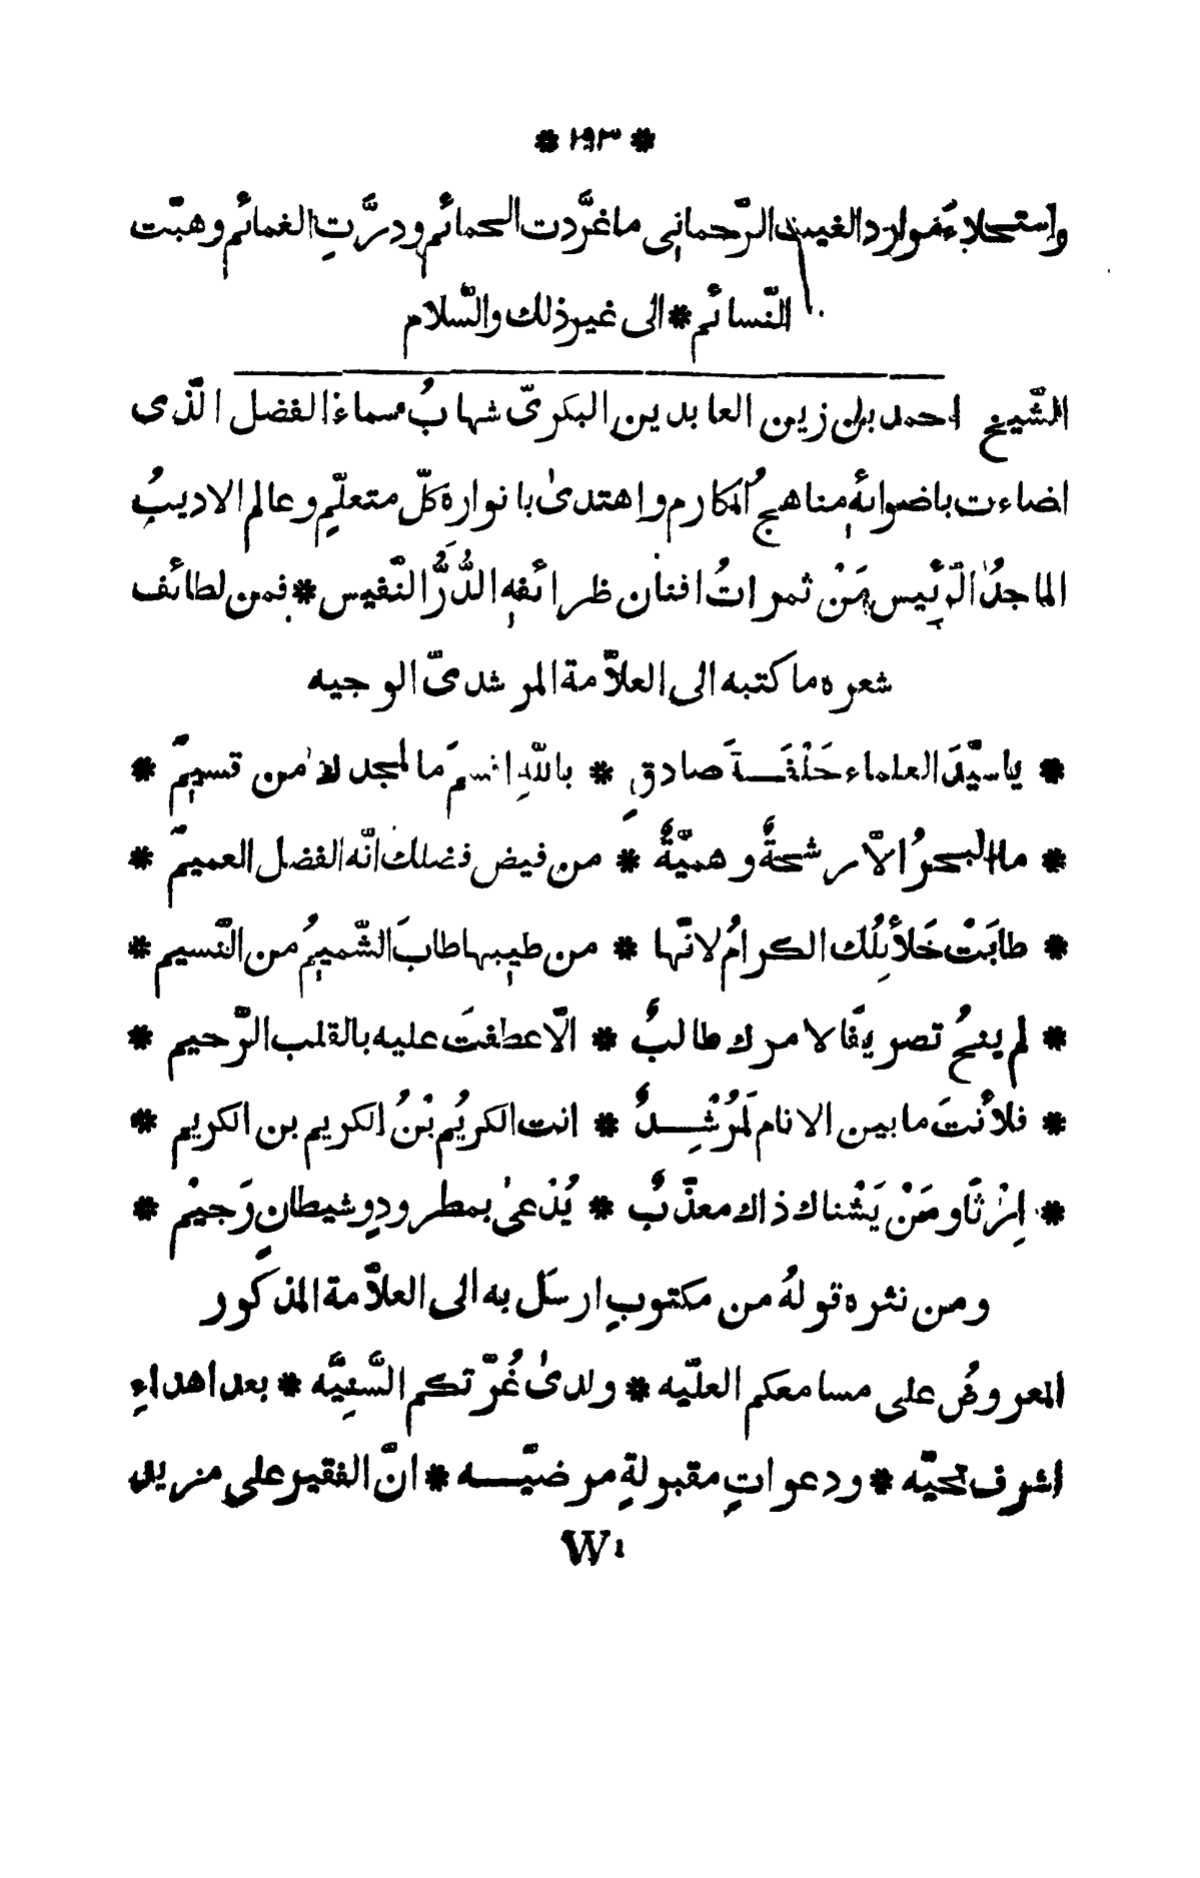 * ١٩٣ *
واستحلاء موارد الغيث الرّحماني ما غرَّدت الحمائم ودرَّتِ الغمائم وهبّت
النّسائم * الى غير ذلك والسّلام
الشّيخ احمد بن زين العابدين البكريّ شهابُ سماء الفضل الّذى
اضاءت باضوائهِ مناهجُ المكارم واهتدىٰ بانواره كلّ متعلّمٍ وعالم الاديبُ
الماجدُ الرّئيس مَنْ ثمراتُ افنان ظرائفهِ الدُّرُّ النّفيس * فمن لطائف
شعره ما كتبه الى العلاّمة المرشدىّ الوجيه
* ياسيّدَ العلماء حَلْفَـــةَ صادقٍ * باللّهِ اقسمَ ما لمجدك من قسيمْ *
* ما البحرُ الاّ رشحةٌ وهميّةٌ * من فيض فضلك انّه الفضل العميمْ *
* طابَتْ خَلاَئِلُك الكرامُ لانّها * من طيبها طابَ الشّميمُ من النّسيم *
* لم ينحُ تصويقًا لامرك طالبٌ * الّا عطفتَ عليه بالقلب الرّحيم *
* فلأنتَ ما بين الانام لَمُرْشِـــدٌ * انت الكريُم بْنُ الكريم بن الكريم *
* اِرْثًا ومَنْ يَشْناك ذاك معذّبٌ * يُدْعىٰ بمطرودٍ وشيطانٍ رَجيمْ *
ومن نثره قولهُ من مكتوبٍ ارسل به الى العلاّمة المذكور
المعروضُ على مسامعكم العليّه * ولدىٰ غُرّتكم السَّنِيَّه * بعد اهداءِ
اشرف تحيّه * ودعواتٍ مقبولةٍ مرضيّـــه * انّ الفقير على مزيد
W١